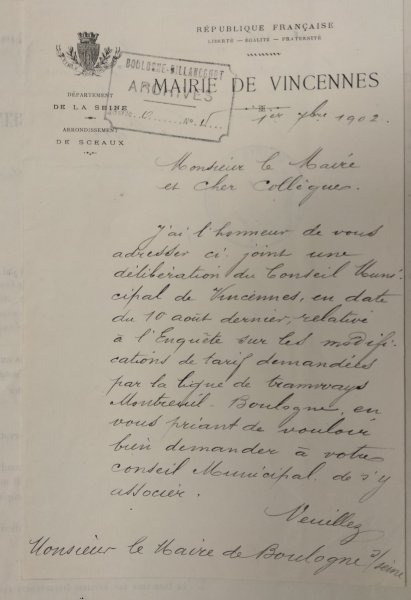 RÉPUBLIQUE FRANÇAISE
LIBERTÉ — ÉGALITÉ — FRATERNITÉ
BOULOGNE-BILLANCOURT
ARCHIVES
MAIRIE DE VINCENNES
DÉPARTEMENT
DE LA SEINE
ARRONDISSEMENT
DE SCEAUX
1er 7bre 1902.
Monsieur le Maire
et cher Collègue.
J'ai l'honneur de vous
adresser ci joint une
délibération du Conseil Muni-
cipal de Vincennes, en date
du 10 août dernier, relative
à l'Enquête sur les modifi-
cations de tarif demandées
par la ligne de tramways
Montreuil-Boulogne, en
vous priant de vouloir
bien demander à votre
conseil Municipal de s'y
associer.
Veuillez
Monsieur le Maire de Boulogne s/seine